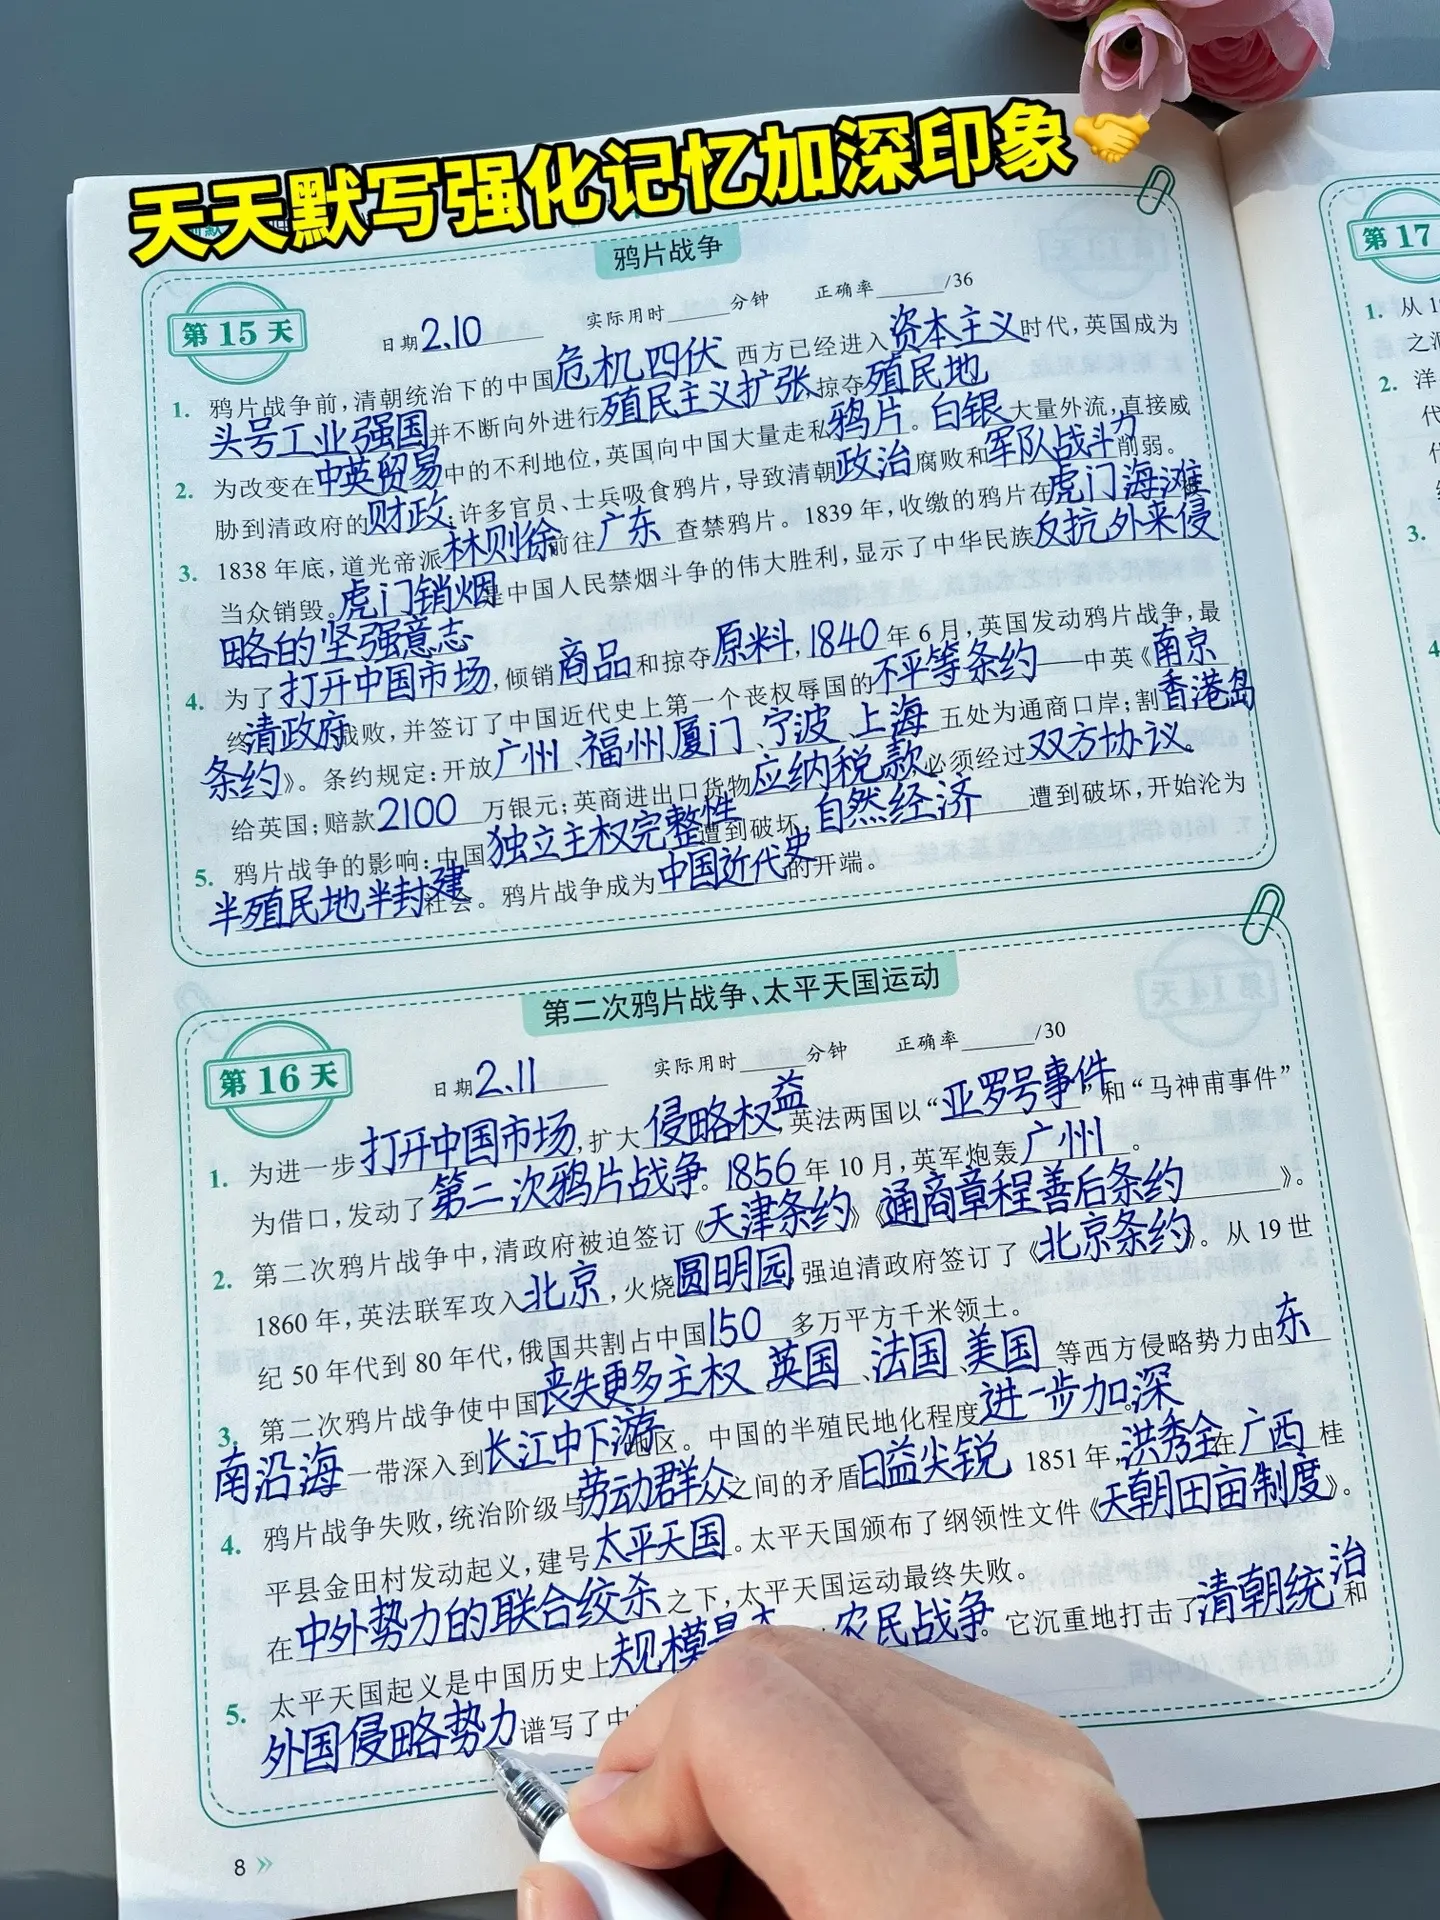 天天默写强化记忆加深印象
鸦片战争
第15天
日期2.10 实际用时____分钟 正确率____/36
1. 鸦片战争前,清朝统治下的中国危机四伏 西方已经进入资本主义时代,英国成为
头号工业强国并不断向外进行殖民主义扩张掠夺殖民地
2. 为改变在中英贸易中的不利地位,英国向中国大量走私鸦片。白银大量外流,直接威
胁到清政府的财政;许多官员、士兵吸食鸦片,导致清朝政治腐败和军队战斗力削弱。
3. 1838年底,道光帝派林则徐前往广东查禁鸦片。1839年,收缴的鸦片在虎门海滩
当众销毁。虎门销烟是中国人民禁烟斗争的伟大胜利,显示了中华民族反抗外来侵
略的坚强意志
4. 为了打开中国市场,倾销商品和掠夺原料,1840年6月,英国发动鸦片战争,最
终清政府战败,并签订了中国近代史上第一个丧权辱国的不平等条约——中英《南京
条约》。条约规定:开放广州、福州、厦门、宁波、上海五处为通商口岸;割香港岛
给英国;赔款2100万银元;英商进出口货物应纳税款必须经过双方协议。
5. 鸦片战争的影响:中国独立主权完整性遭到破坏,自然经济遭到破坏,开始沦为
半殖民地半封建社会。鸦片战争成为中国近代史的开端。
第二次鸦片战争、太平天国运动
第16天
日期2.11 实际用时____分钟 正确率____/30
1. 为进一步打开中国市场,扩大侵略权益,英法两国以“亚罗号事件”和“马神甫事件”
为借口,发动了第二次鸦片战争。1856年10月,英军炮轰广州。
2. 第二次鸦片战争中,清政府被迫签订《天津条约》《通商章程善后条约》。
1860年,英法联军攻入北京,火烧圆明园,强迫清政府签订了《北京条约》。从19世
纪50年代到80年代,俄国共割占中国150多万平方千米领土。
3. 第二次鸦片战争使中国丧失更多主权 英国、法国、美国等西方侵略势力由东
南沿海一带深入到长江中下游地区。中国的半殖民地化程度进一步加深
4. 鸦片战争失败,统治阶级与劳动群众之间的矛盾日益尖锐 1851年,洪秀全在广西桂
平县金田村发动起义,建号太平天国。太平天国颁布了纲领性文件《天朝田亩制度》。
在中外势力的联合绞杀之下,太平天国运动最终失败。
5. 太平天国起义是中国历史上规模最大 农民战争。它沉重地打击了清朝统治和
外国侵略势力谱写了中
8
第17
1. 从1
之
2. 洋
代
3.
4